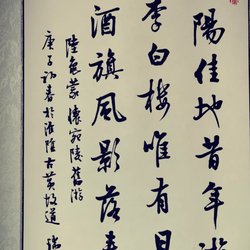 陽佳地昔年游
李白樓唯有日
酒旗風影落春
陸龜蒙懷宛陵舊游
庚子初春於淮陰古黃道瑞